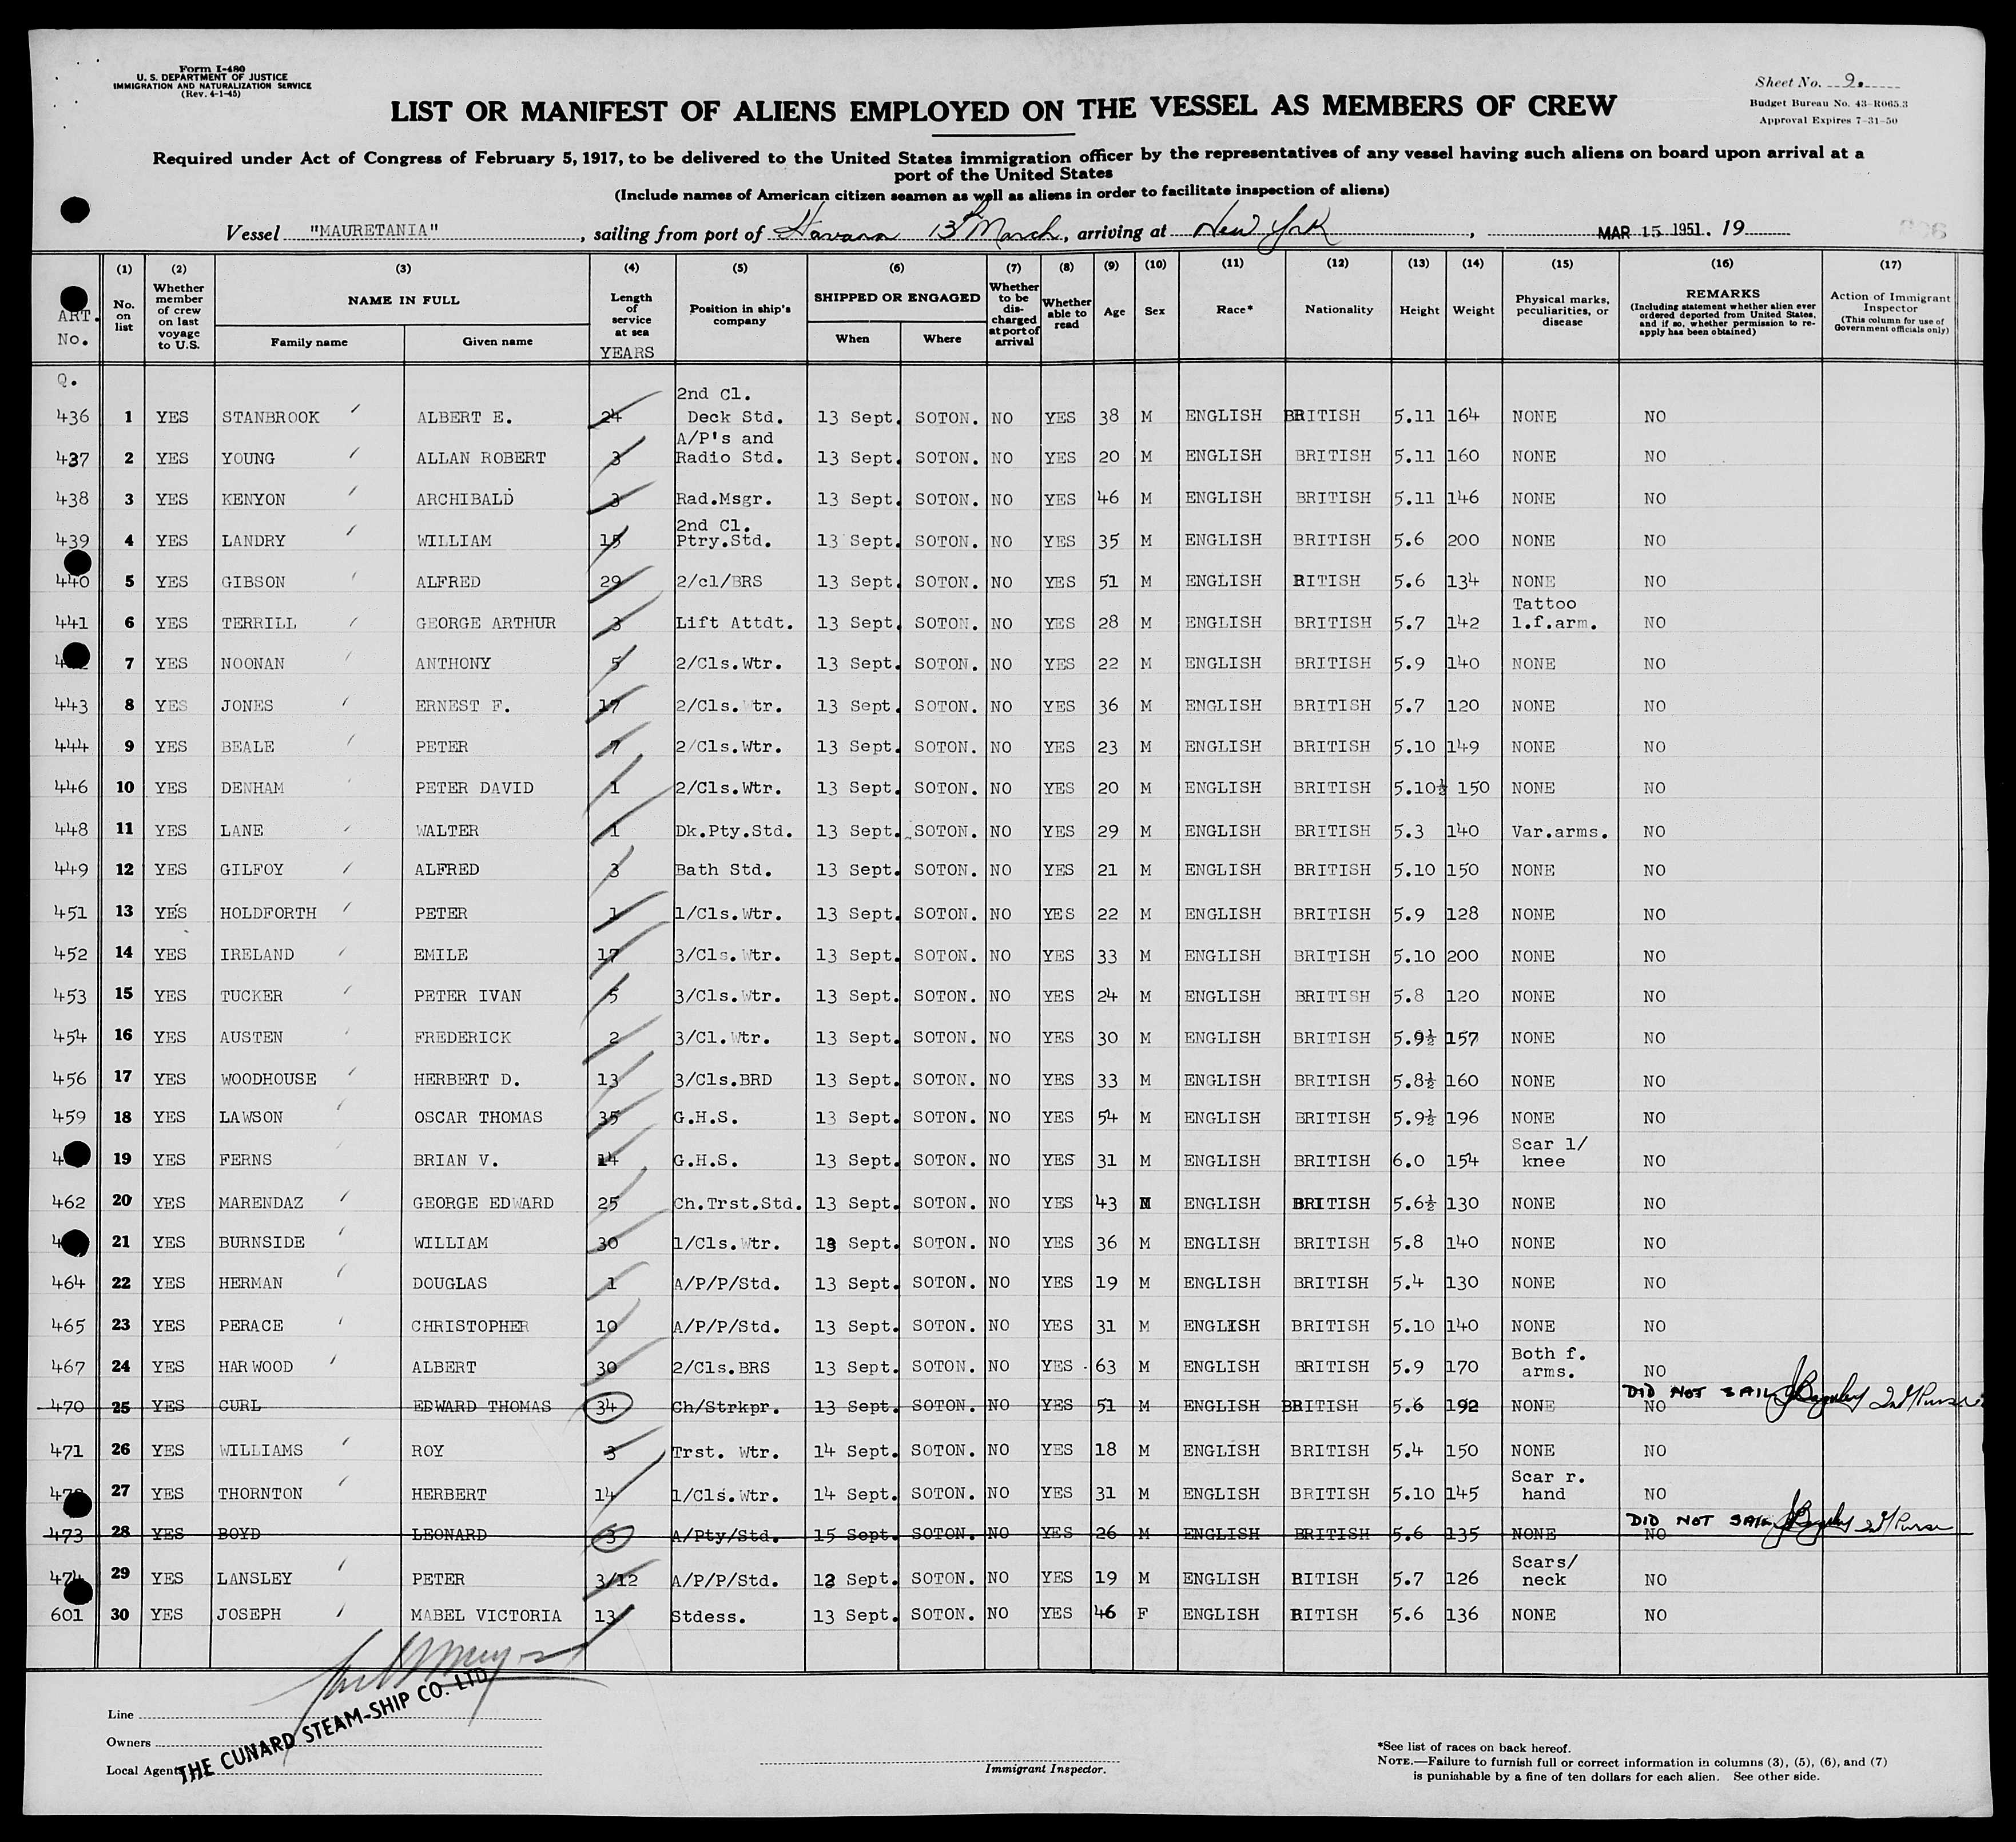 Form I-480
U. S. DEPARTMENT OF JUSTICE
IMMIGRATION AND NATURALIZATION SERVICE
(Rev. 4-1-45)
Sheet No. 9.
Budget Bureau No. 43-R065.3
Approval Expires 7-31-50
LIST OR MANIFEST OF ALIENS EMPLOYED ON THE VESSEL AS MEMBERS OF CREW
Required under Act of Congress of February 5, 1917, to be delivered to the United States immigration officer by the representatives of any vessel having such aliens on board upon arrival at a
port of the United States
(Include names of American citizen seamen as well as aliens in order to facilitate inspection of aliens)
Vessel "MAURETANIA", sailing from port of Havana 13th March, arriving at New York, MAR 15 1951. 19
ART. No. (1) No. on list (2) Whether member of crew on last voyage to U.S. (3) NAME IN FULL Family name Given name (4) Length of service at sea YEARS (5) Position in ship's company (6) SHIPPED OR ENGAGED When Where (7) Whether to be discharged at port of arrival (8) Whether able to read (9) Age (10) Sex (11) Race* (12) Nationality (13) Height (14) Weight (15) Physical marks, peculiarities, or disease (16) REMARKS (Including statement whether alien ever ordered deported from United States, and if so, whether permission to reapply has been obtained) (17) Action of Immigrant Inspector (This column for use of Government officials only)
Q.
436 1 YES STANBROOK ALBERT E. 24 2nd Cl. Deck Std. 13 Sept. SOTON. NO YES 38 M ENGLISH BRITISH 5.11 164 NONE NO
437 2 YES YOUNG ALLAN ROBERT 3 A/P's and Radio Std. 13 Sept. SOTON. NO YES 20 M ENGLISH BRITISH 5.11 160 NONE NO
438 3 YES KENYON ARCHIBALD 3 Rad.Msgr. 13 Sept. SOTON. NO YES 46 M ENGLISH BRITISH 5.11 146 NONE NO
439 4 YES LANDRY WILLIAM 15 2nd Cl. Ptry.Std. 13 Sept. SOTON. NO YES 35 M ENGLISH BRITISH 5.6 200 NONE NO
440 5 YES GIBSON ALFRED 29 2/cl/BRS 13 Sept. SOTON. NO YES 51 M ENGLISH RITISH 5.6 134 NONE NO
441 6 YES TERRILL GEORGE ARTHUR 3 Lift Attdt. 13 Sept. SOTON. NO YES 28 M ENGLISH BRITISH 5.7 142 Tattoo l.f.arm. NO
7 YES NOONAN ANTHONY 5 2/Cls.Wtr. 13 Sept. SOTON. NO YES 22 M ENGLISH BRITISH 5.9 140 NONE NO
443 8 YES JONES ERNEST F. 17 2/Cls.Wtr. 13 Sept. SOTON. NO YES 36 M ENGLISH BRITISH 5.7 120 NONE NO
444 9 YES BEALE PETER 7 2/Cls.Wtr. 13 Sept. SOTON. NO YES 23 M ENGLISH BRITISH 5.10 149 NONE NO
446 10 YES DENHAM PETER DAVID 1 2/Cls.Wtr. 13 Sept. SOTON. NO YES 20 M ENGLISH BRITISH 5.10½ 150 NONE NO
448 11 YES LANE WALTER 1 Dk.Pty.Std. 13 Sept. SOTON. NO YES 29 M ENGLISH BRITISH 5.3 140 Var.arms. NO
449 12 YES GILFOY ALFRED 3 Bath Std. 13 Sept. SOTON. NO YES 21 M ENGLISH BRITISH 5.10 150 NONE NO
451 13 YES HOLDFORTH PETER 1 1/Cls.Wtr. 13 Sept. SOTON. NO YES 22 M ENGLISH BRITISH 5.9 128 NONE NO
452 14 YES IRELAND EMILE 17 3/Cls.Wtr. 13 Sept. SOTON. NO YES 33 M ENGLISH BRITISH 5.10 200 NONE NO
453 15 YES TUCKER PETER IVAN 5 3/Cls.Wtr. 13 Sept. SOTON. NO YES 24 M ENGLISH BRITISH 5.8 120 NONE NO
454 16 YES AUSTEN FREDERICK 2 3/Cl.Wtr. 13 Sept. SOTON. NO YES 30 M ENGLISH BRITISH 5.9½ 157 NONE NO
456 17 YES WOODHOUSE HERBERT D. 13 3/Cls.BRD 13 Sept. SOTON. NO YES 33 M ENGLISH BRITISH 5.8½ 160 NONE NO
459 18 YES LAWSON OSCAR THOMAS 35 G.H.S. 13 Sept. SOTON. NO YES 54 M ENGLISH BRITISH 5.9½ 196 NONE NO
19 YES FERNS BRIAN V. 14 G.H.S. 13 Sept. SOTON. NO YES 31 M ENGLISH BRITISH 6.0 154 Scar l/ knee NO
462 20 YES MARENDAZ GEORGE EDWARD 25 Ch.Trst.Std. 13 Sept. SOTON. NO YES 43 M ENGLISH BRITISH 5.6½ 130 NONE NO
21 YES BURNSIDE WILLIAM 30 1/Cls.Wtr. 13 Sept. SOTON. NO YES 36 M ENGLISH BRITISH 5.8 140 NONE NO
464 22 YES HERMAN DOUGLAS 1 A/P/P/Std. 13 Sept. SOTON. NO YES 19 M ENGLISH BRITISH 5.4 130 NONE NO
465 23 YES PERACE CHRISTOPHER 10 A/P/P/Std. 13 Sept. SOTON. NO YES 31 M ENGLISH BRITISH 5.10 140 NONE NO
467 24 YES HARWOOD ALBERT 30 2/Cls.BRS 13 Sept. SOTON. NO YES 63 M ENGLISH BRITISH 5.9 170 Both f. arms. NO
470 25 YES CURL EDWARD THOMAS 34 Ch/Strkpr. 13 Sept. SOTON. NO YES 51 M ENGLISH BRITISH 5.6 192 NONE NO DID NOT SAIL
471 26 YES WILLIAMS ROY 3 Trst. Wtr. 14 Sept. SOTON. NO YES 18 M ENGLISH BRITISH 5.4 150 NONE NO
27 YES THORNTON HERBERT 14 1/Cls.Wtr. 14 Sept. SOTON. NO YES 31 M ENGLISH BRITISH 5.10 145 Scar r. hand NO
473 28 YES BOYD LEONARD 3 A/Pty/Std. 15 Sept. SOTON. NO YES 26 M ENGLISH BRITISH 5.6 135 NONE NO DID NOT SAIL
474 29 YES LANSLEY PETER 3/12 A/P/P/Std. Sept. SOTON. NO YES 19 M ENGLISH RITISH 5.7 126 Scars/ neck NO
601 30 YES JOSEPH MABEL VICTORIA 13 Stdess. 13 Sept. SOTON. NO YES 46 F ENGLISH RITISH 5.6 136 NONE NO
Line
Owners
Local Agents
THE CUNARD STEAM-SHIP CO. LTD
Immigrant Inspector.
*See list of races on back hereof.
NOTE.—Failure to furnish full or correct information in columns (3), (5), (6), and (7)
is punishable by a fine of ten dollars for each alien. See other side.